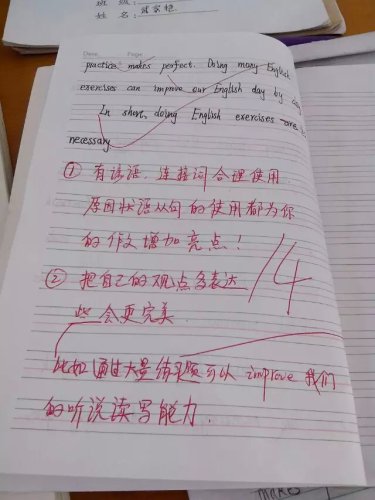 班级:
姓名:
Date Page
practice makes perfect. Doing many English
exercises can improve our English day by day
In short, doing English exercises are
necessary
① 有谚语.连接词合理使用
原因状语从句的使用都为你
的作文增加亮点!
14
② 把自己的观点多表达
些会更完美.
比如通过大量练习题可以 improve 我们
的听说读写能力.
makes